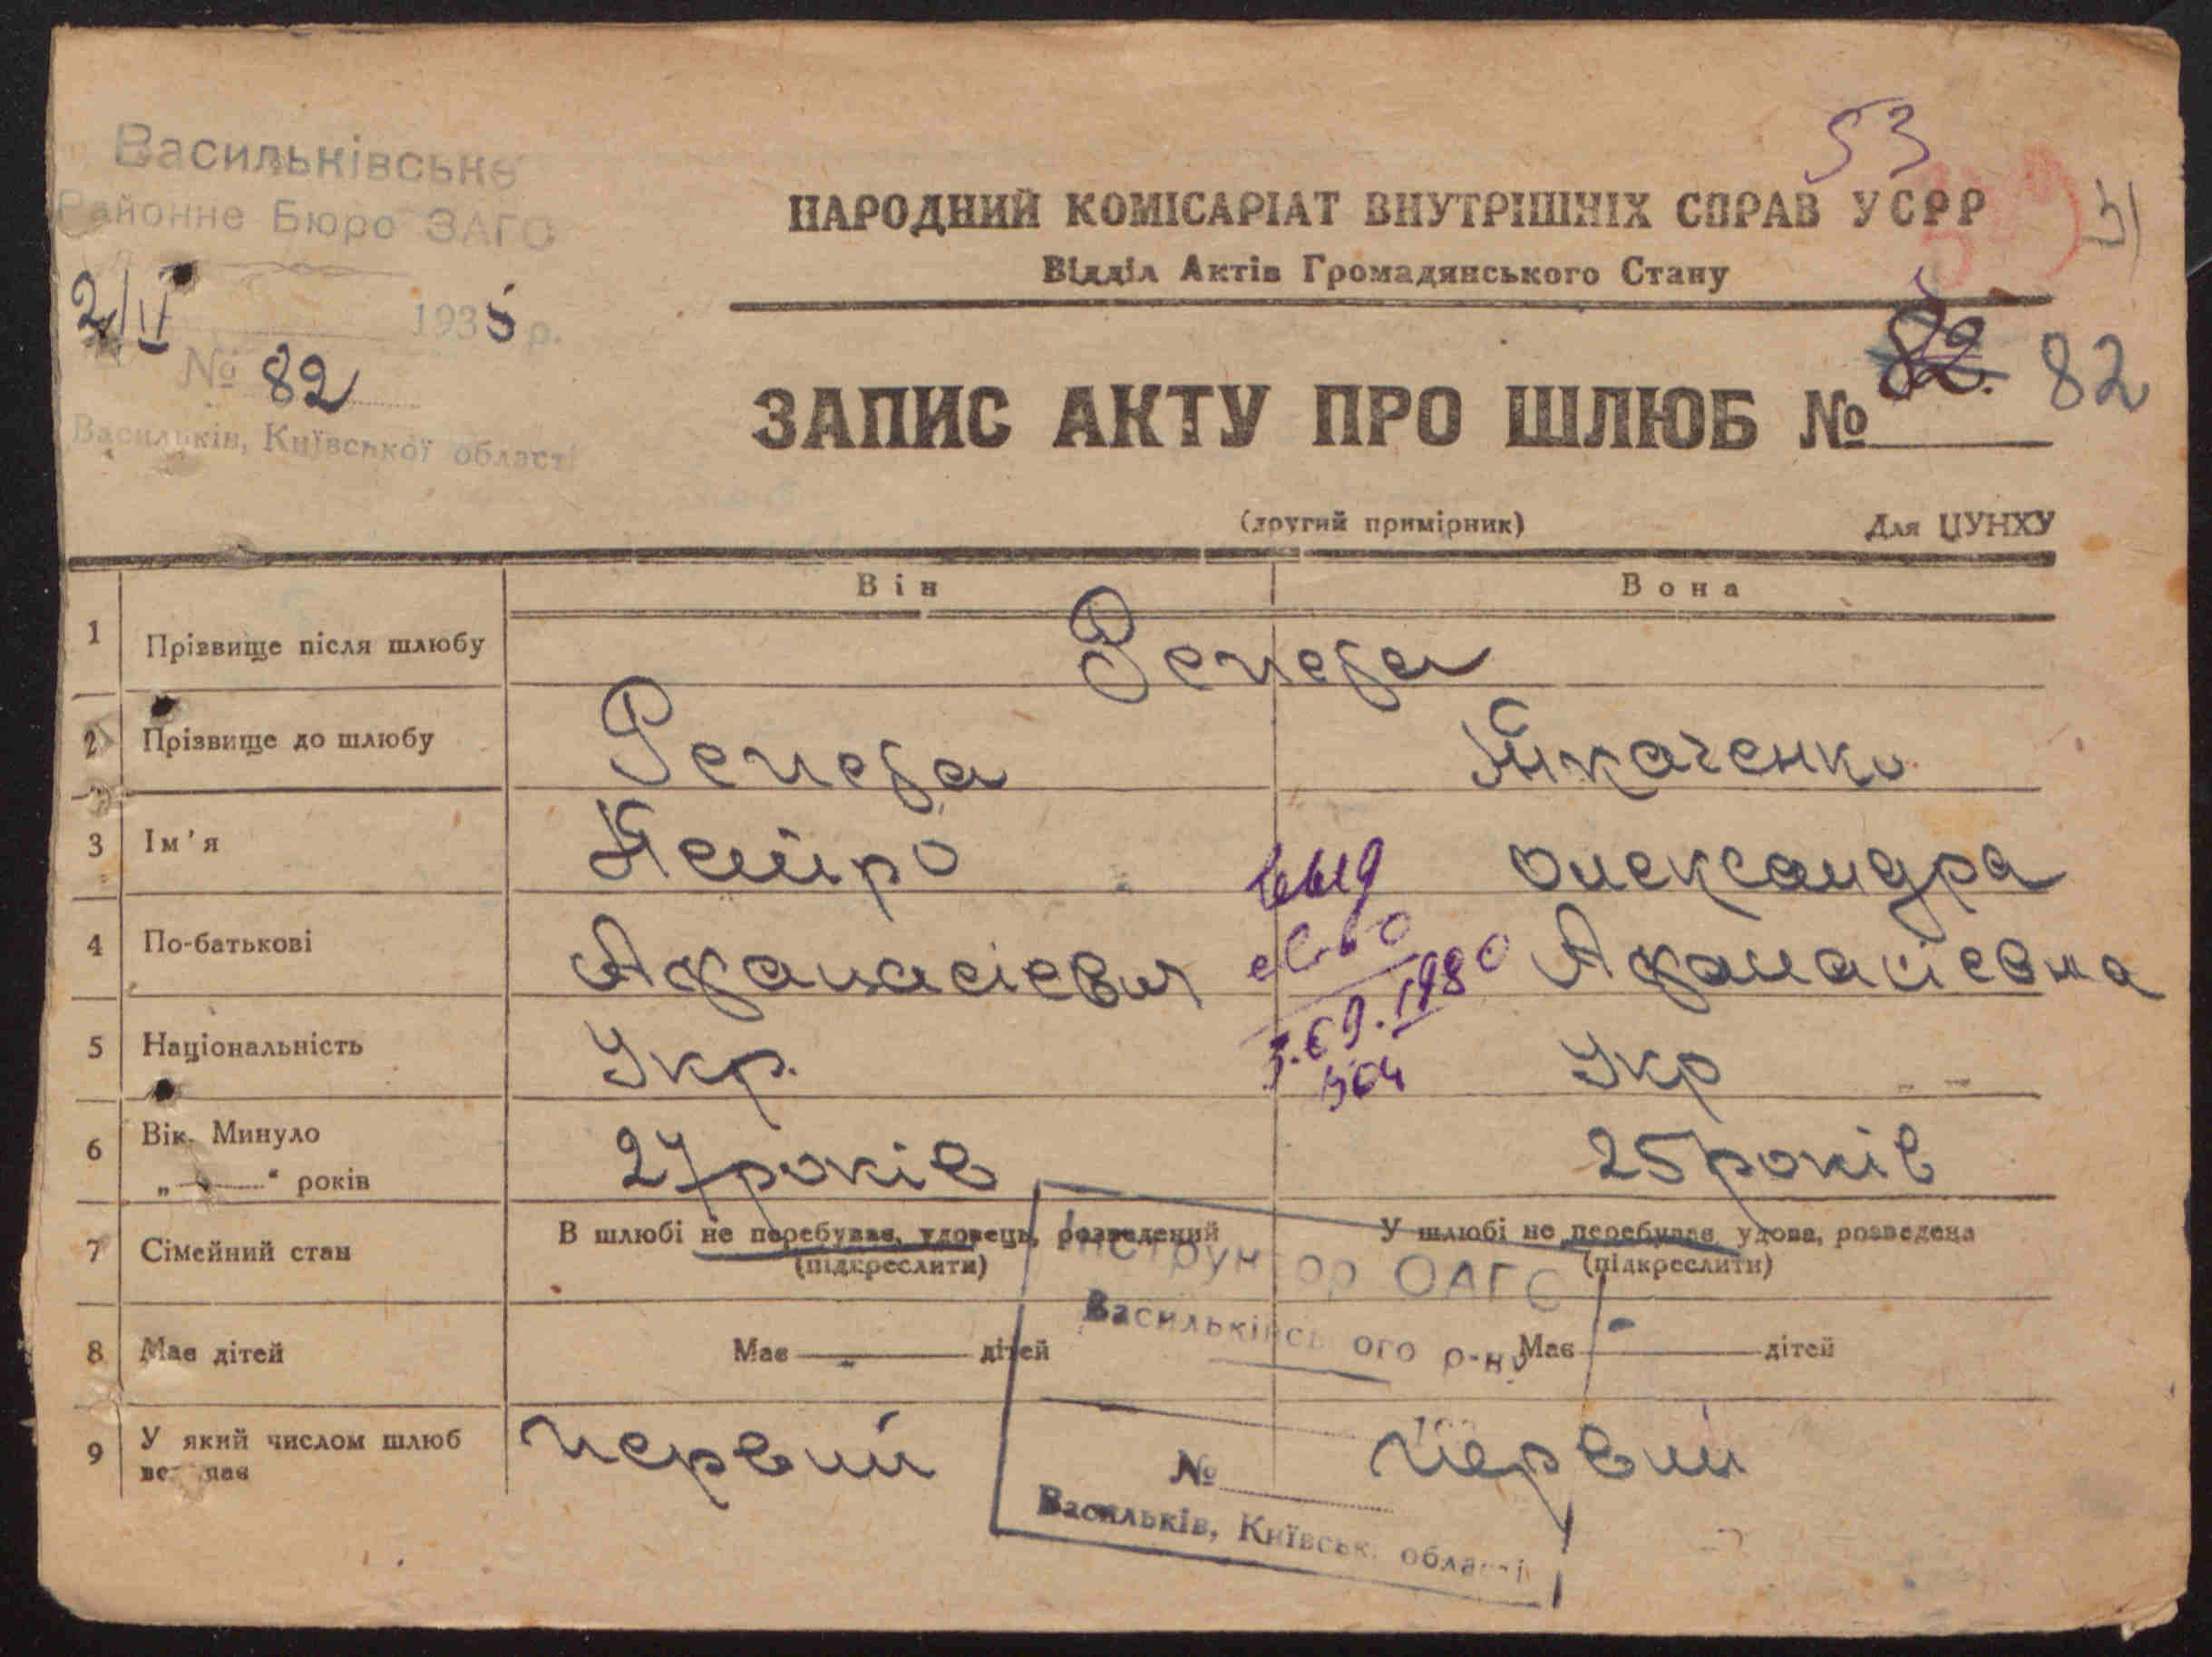 Васильківське
Районне Бюро ЗАГС
2/II 1935 р.
№ 82
Васильків, Київської області
53
НАРОДНИЙ КОМІСАРІАТ ВНУТРІШНІХ СПРАВ УСРР
Відділ Актів Громадянського Стану
ЗАПИС АКТУ ПРО ШЛЮБ № 82. 82
(другий примірник) Для ЦУНХУ
Він Вона
1 Прізвище після шлюбу Репета
2 Прізвище до шлюбу Репета Ткаченко
3 Ім'я Петро Олександра
4 По-батькові Афанасієвич Афанасієвна
5 Національність Укр. Укр
6 Вік. Минуло 27 років 25 років
„ “ років
7 Сімейний стан В шлюбі не перебував, удовець, розведений У шлюбі не перебувала, удова, розведена
(підкреслити) (підкреслити)
8 Має дітей Має - дітей Має - дітей
9 У який числом шлюб вступає первий первий
выд
св-во
3.09.1980
Інструктор ОАГС
Васильківського р-ну
№
Васильків, Київськ. області